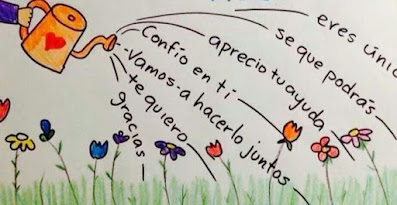 eres únic
se que podrás
aprecio tu ayuda
Confío en ti
Vamos a hacerlo juntos
te quiero
gracias